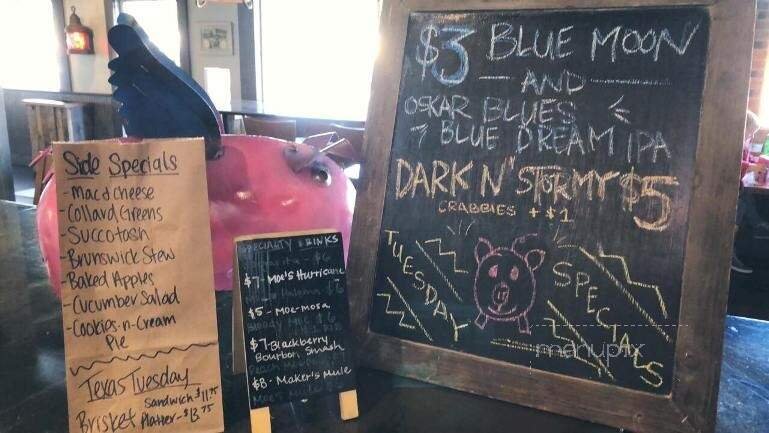 Side Specials
- Mac & cheese
- Collard Greens
- Succotash
- Brunswick Stew
- Baked Apples
- Cucumber Salad
- Cookies-n-Cream
Pie
Texas Tuesday
Sandwich $11.75
Brisket Platter - $13.75
SPECIALTY DRINKS
$7 - Moe's Hurricane
$5 - Moe-mosa
$7 - Blackberry
Bourbon Smash
$8 - Maker's Mule
$3 BLUE MOON
AND
OSKAR BLUES
BLUE DREAM IPA
DARK N' STORMY $5
CRABBIES + $1
TUESDAY
SPECIALS
menupix